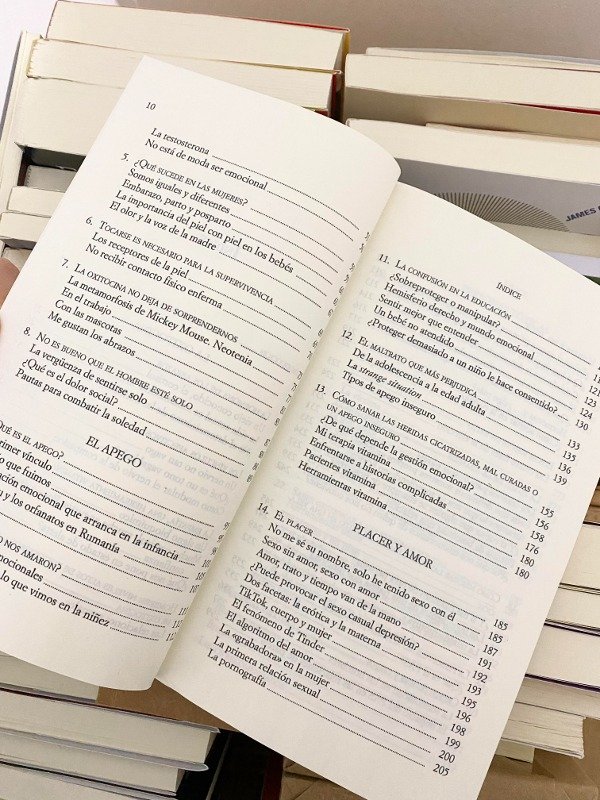 10
La testosterona
No está de moda ser emocional
5. ¿QUÉ SUCEDE EN LAS MUJERES?
Somos iguales y diferentes
Embarazo, parto y posparto
La importancia del piel con piel en los bebés
El olor y la voz de la madre
6. TOCARSE ES NECESARIO PARA LA SUPERVIVENCIA
Los receptores de la piel
No recibir contacto físico enferma
7. LA OXITOCINA NO DEJA DE SORPRENDERNOS
La metamorfosis de Mickey Mouse. Neotenia
En el trabajo
Con las mascotas
Me gustan los abrazos
8. NO ES BUENO QUE EL HOMBRE ESTÉ SOLO
La vergüenza de sentirse solo
¿Qué es el dolor social?
Pautas para combatir la soledad
EL APEGO
ES EL APEGO?
primer vínculo
que fuimos
emocional que arranca en la infancia
y los orfanatos en Rumanía
NOS AMARON?
emocionales
lo que vimos en la niñez
ÍNDICE
11. LA CONFUSIÓN EN LA EDUCACIÓN
¿Sobreproteger o manipular? 121
Hemisferio derecho y mundo emocional 121
Sentir mejor que entender 123
Un bebé no atendido 124
¿Proteger demasiado a un niño le hace consentido? 130
12. EL MALTRATO QUE MÁS PERJUDICA 133
De la adolescencia a la edad adulta 135
La strange situation 136
Tipos de apego inseguro 139
13. CÓMO SANAR LAS HERIDAS CICATRIZADAS, MAL CURADAS O
UN APEGO INSEGURO 155
¿De qué depende la gestión emocional? 156
Mi terapia vitamina 158
Enfrentarse a historias complicadas 176
Pacientes vitamina 180
Herramientas vitamina 180
PLACER Y AMOR
14. EL PLACER 185
No me sé su nombre, solo he tenido sexo con él 185
Sexo sin amor, sexo con amor 187
Amor, trato y tiempo van de la mano 191
¿Puede provocar el sexo casual depresión? 192
Dos facetas: la erótica y la materna 193
TikTok, cuerpo y mujer 195
El fenómeno de Tinder 196
El algoritmo del amor 198
La «grabadora» en la mujer 199
La primera relación sexual 200
La pornografía 205
JAMES